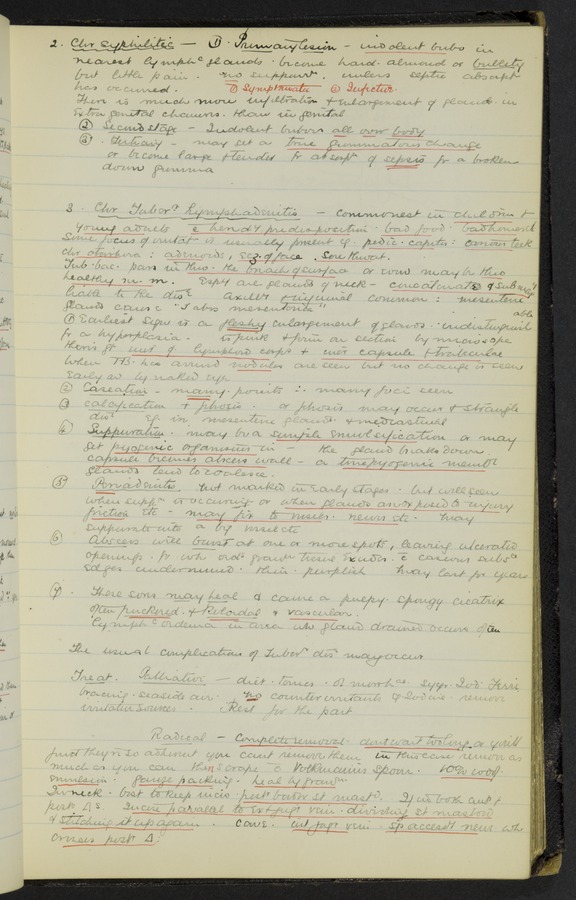 2. Chr Syphilitic — ① Primary lesion - indolent bubo in
nearest lymphᶜ glands. become hard. almond or bullety
but little pain. no suppurⁿ. unless septic absorptⁿ
has occurred. ① Symptomatic ② Infective.
There is much more infiltration & enlargement of glands in
Extra genital chancres. than in genital
② Second stage - Indolent bubos all over body
③ Tertiary - may set a true gummatous change
or become large & tender fr absorpⁿ of sepsis fr a broken
down gumma
3. Chr Tuberᵃ Lymphadenitis — commonest in children &
young adults c heredʸ predisposition. bad food. bad
Some focus of irritatⁿ is usually present eg. pedic. capitis: carious teeth
chr otorrhoea: adenoids, ecz. of face. Sore throat.
Tub. bac. pass in thro. the breach of surface or even may be thro
healthy m. m. Esply are glands of neck -
liable to the disᵉ axillʸ & inguinal common: mesenteric
glands cause "Tabes mesenterica"
① Earliest Sign is a fleshy enlargement of glands. indistinguish
able
fr a hyperplasia. is pink & firm on section by microscope
there is gt incr of lymphoid corps & incr capsule & trabeculae
When TB. has arrived nodules are seen but no change is seen
early as by naked eye
② Caseation - many points ∴ many foci seen
③ calcification + fibrosis. or fibrosis may occur & strangle
disᵉ esp in mesenteric glands & mediastinal
④ Suppuration. may be a simple emulsification or may
get pyogenic organisms in - the gland breaks down.
capsule becomes abscess wall - a true pyogenic membᵉ
glands tend to coalesce.
⑤ Periadenitis. Not marked in early stages. but well seen
when suppⁿ is occurring or when glands are exposed to injury
friction etc - may fix to muscles. nerves etc. may
suppurate into a big
⑥ Abscess will burst at one or more spots, leaving ulcerated
openings. fr wh. ordʸ granⁿ tissue exudes. c
edges undermined. thin. purplish may last for years
⑦. These sores may heal & cause a puckery spongy cicatrix
often puckered. & keloidal & vascular.
Lymphᶜ oedema in area wh. gland drained occurs often
The usual complications of Tuberᵃ disᵉ may occur
Treat. Palliative - diet. tonics. Syr. Iod. Ferri
bracing. seaside air. no counterirritants & Iodine. remove
irritation sources. Rest for the part
Radical - complete removal. dont wait too long or you'll
find they're so adherent you cant remove them in this case remove as
much as you can then scrape c Volkmanns spoon. 10% iodof
emulsion: gauze packing. heal by granⁿ
In neck. best to keep incis. post border st. mastᵈ.
post Δs Incise parallel to Ext jugʳ vein dividing st mastoid
& stitching it up again. care. Ext jugʳ vein. Sp accessʸ nerve wh
crosses post Δ.